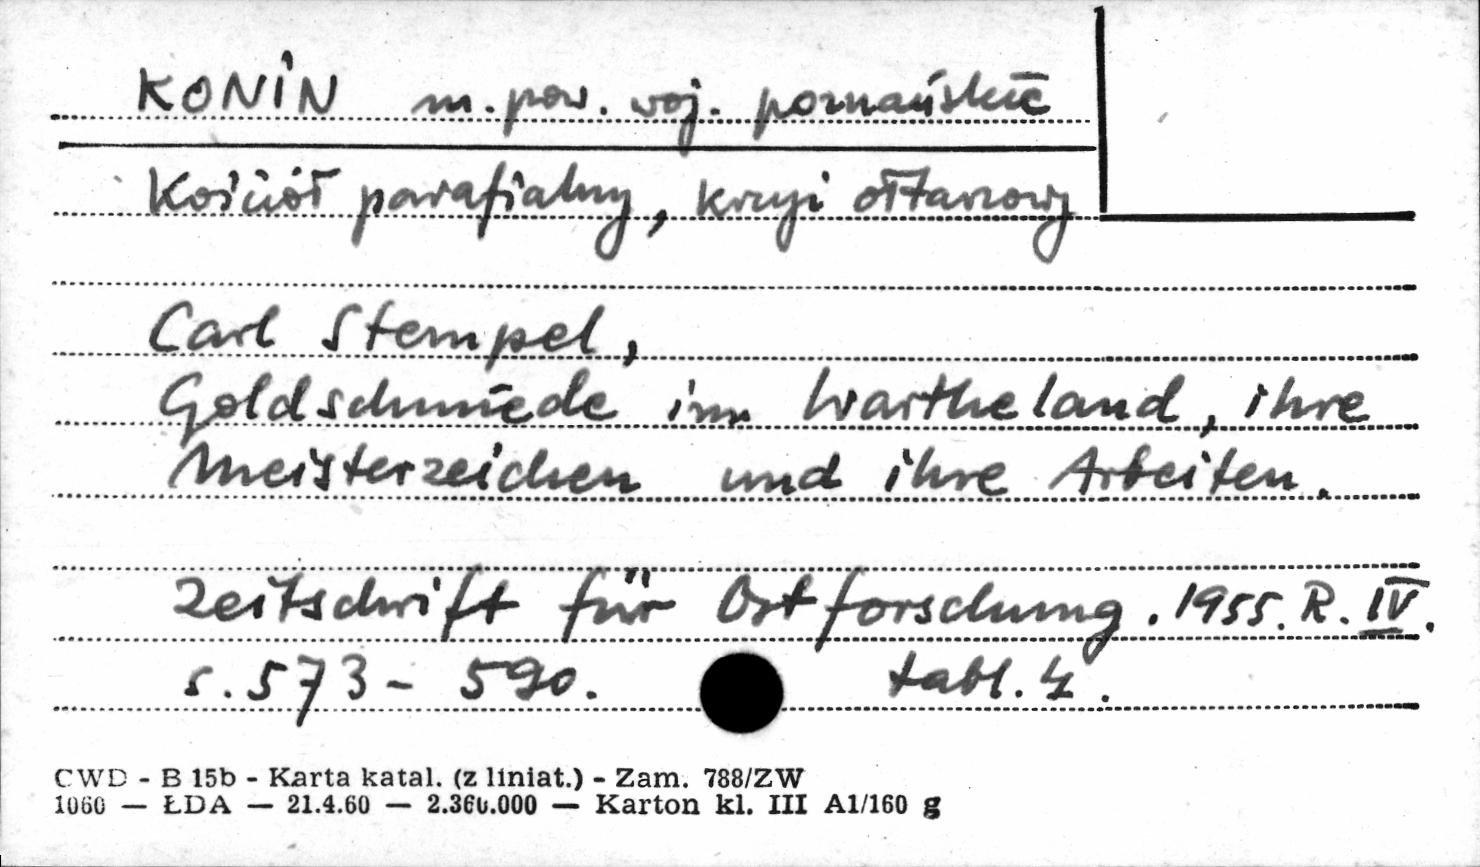 KONIN m. pow. woj. poznańskie
Kościół parafialny, krzyż ołtarzowy
Carl Stempel,
Goldschmiede im Wartheland, ihre
Meisterzeichen und ihre Arbeiten.
Zeitschrift für Ostforschung. 1955. R. IV.
s. 573 - 590. tabl. 4.
CWD - B 15b - Karta katal. (z liniat.) - Zam. 788/ZW
1060 — ŁDA — 21.4.60 — 2.360.000 — Karton kl. III A1/160 g